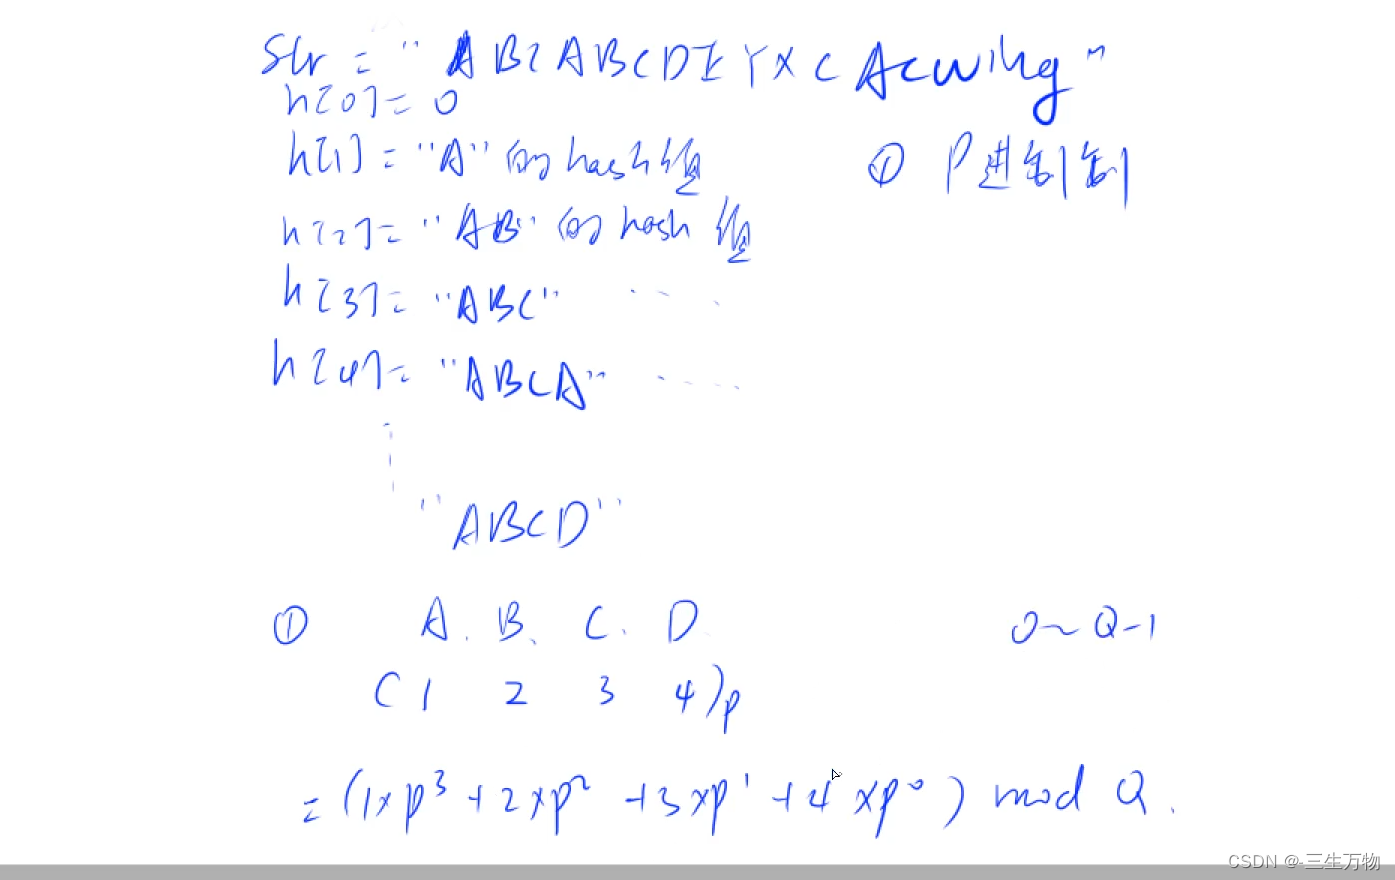 Str = "ABCABCDEYXCAcwing"
h[0]= 0
h[1] = "A" 的 hash 值
① P进制
h[2]= "AB" 的 hash 值
h[3]= "ABC" ....
h[4]= "ABCA" ....
"ABCD"
① A. B. C. D
0~Q-1
(1 2 3 4)p
= (1×p³ + 2×p² + 3×p¹ + 4×p⁰) mod Q.
CSDN @-三生万物